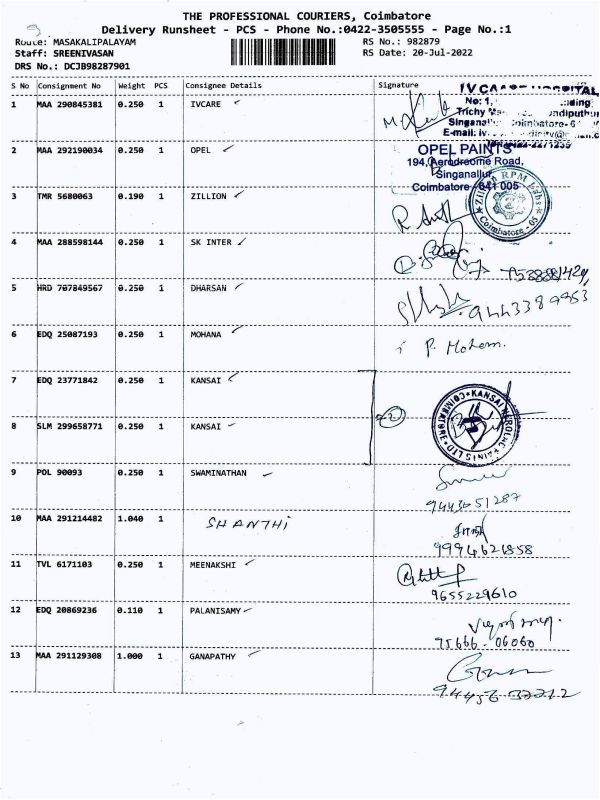 THE PROFESSIONAL COURIERS, Coimbatore
Delivery Runsheet - PCS - Phone No.:0422-3505555 - Page No.:1
Route: MASAKALIPALAYAM RS No.: 982879
Staff: SREENIVASAN RS Date: 20-Jul-2022
DRS No.: DCJB98287901
S No Consignment No Weight PCS Consignee Details Signature
1 MAA 290845381 0.250 1 IVCARE
No: 1,
Trichy
E-mail:
2 MAA 292190034 0.250 1 OPEL
OPEL PAINTS
194, Aerodreome Road,
Singanallur
Coimbatore - 641 005
3 TMR 5680063 0.190 1 ZILLION
RPM Labs
Coimbatore - 05
4 MAA 288598144 0.250 1 SK INTER
5 HRD 707849567 0.250 1 DHARSAN
9443389953
6 EDQ 25087193 0.250 1 MOHANA
P. Mohan.
7 EDQ 23771842 0.250 1 KANSAI
8 SLM 299658771 0.250 1 KANSAI
2
KANSAI NEROLAC PAINTS LTD COIMBATORE
9 POL 90093 0.250 1 SWAMINATHAN
9443651287
10 MAA 291214482 1.040 1 SHANTHI
9994621858
11 TVL 6171103 0.250 1 MEENAKSHI
9655229610
12 EDQ 20869236 0.110 1 PALANISAMY
75666-06060
13 MAA 291129308 1.000 1 GANAPATHY